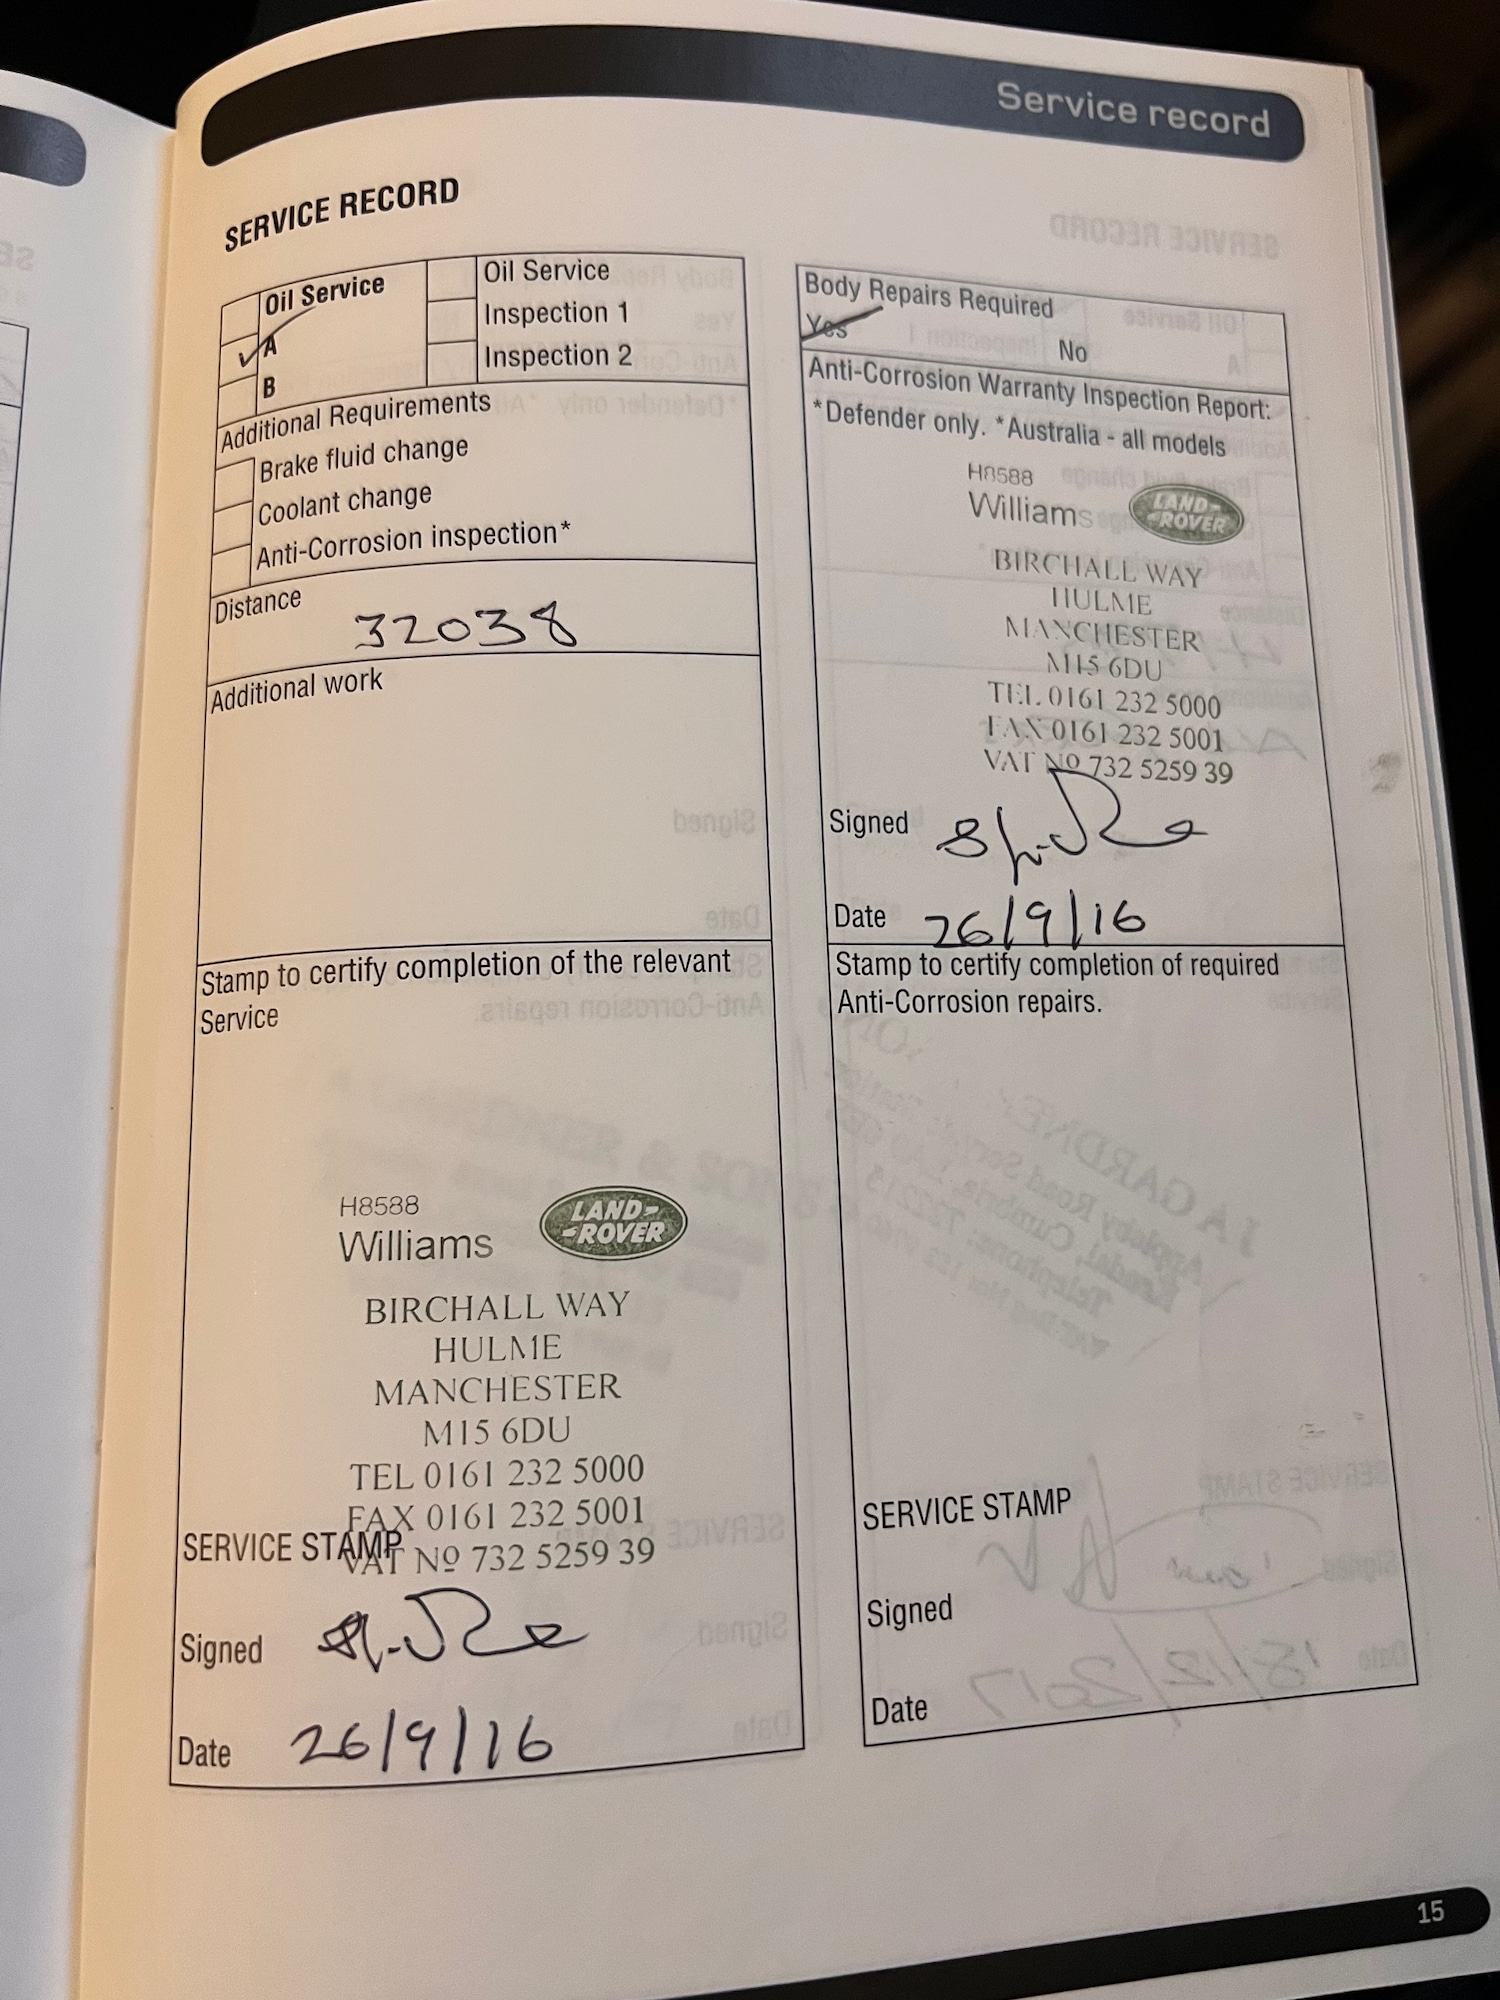 Service record
SERVICE RECORD
Oil Service
A
B
Oil Service
Inspection 1
Inspection 2
Additional Requirements
Brake fluid change
Coolant change
Anti-Corrosion inspection*
Distance
32038
Additional work
Stamp to certify completion of the relevant
Service
H8588
Williams
LAND-
-ROVER
BIRCHALL WAY
HULME
MANCHESTER
M15 6DU
TEL 0161 232 5000
FAX 0161 232 5001
SERVICE STAMP
VAT No 732 5259 39
Signed
Date 26/9/16
Body Repairs Required
Yes
No
Anti-Corrosion Warranty Inspection Report:
*Defender only. *Australia - all models
H8588
Williams
LAND-
-ROVER
BIRCHALL WAY
HULME
MANCHESTER
M15 6DU
TEL 0161 232 5000
FAX 0161 232 5001
VAT No 732 5259 39
Signed
Date 26/9/16
Stamp to certify completion of required
Anti-Corrosion repairs.
SERVICE STAMP
Signed
Date
15